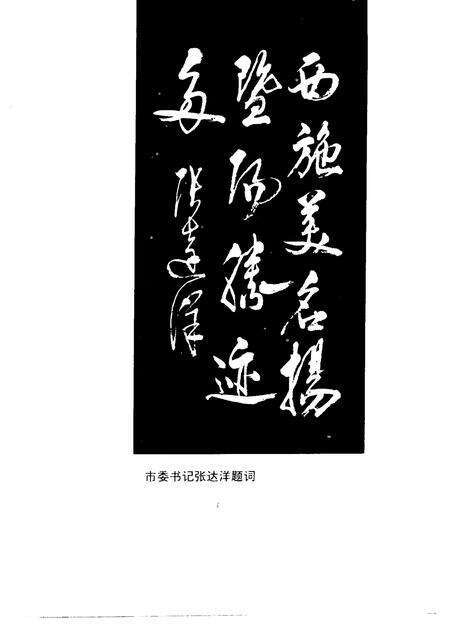 西施美名揚
暨阳勝迹
多
张達洋
市委书记张达洋题词